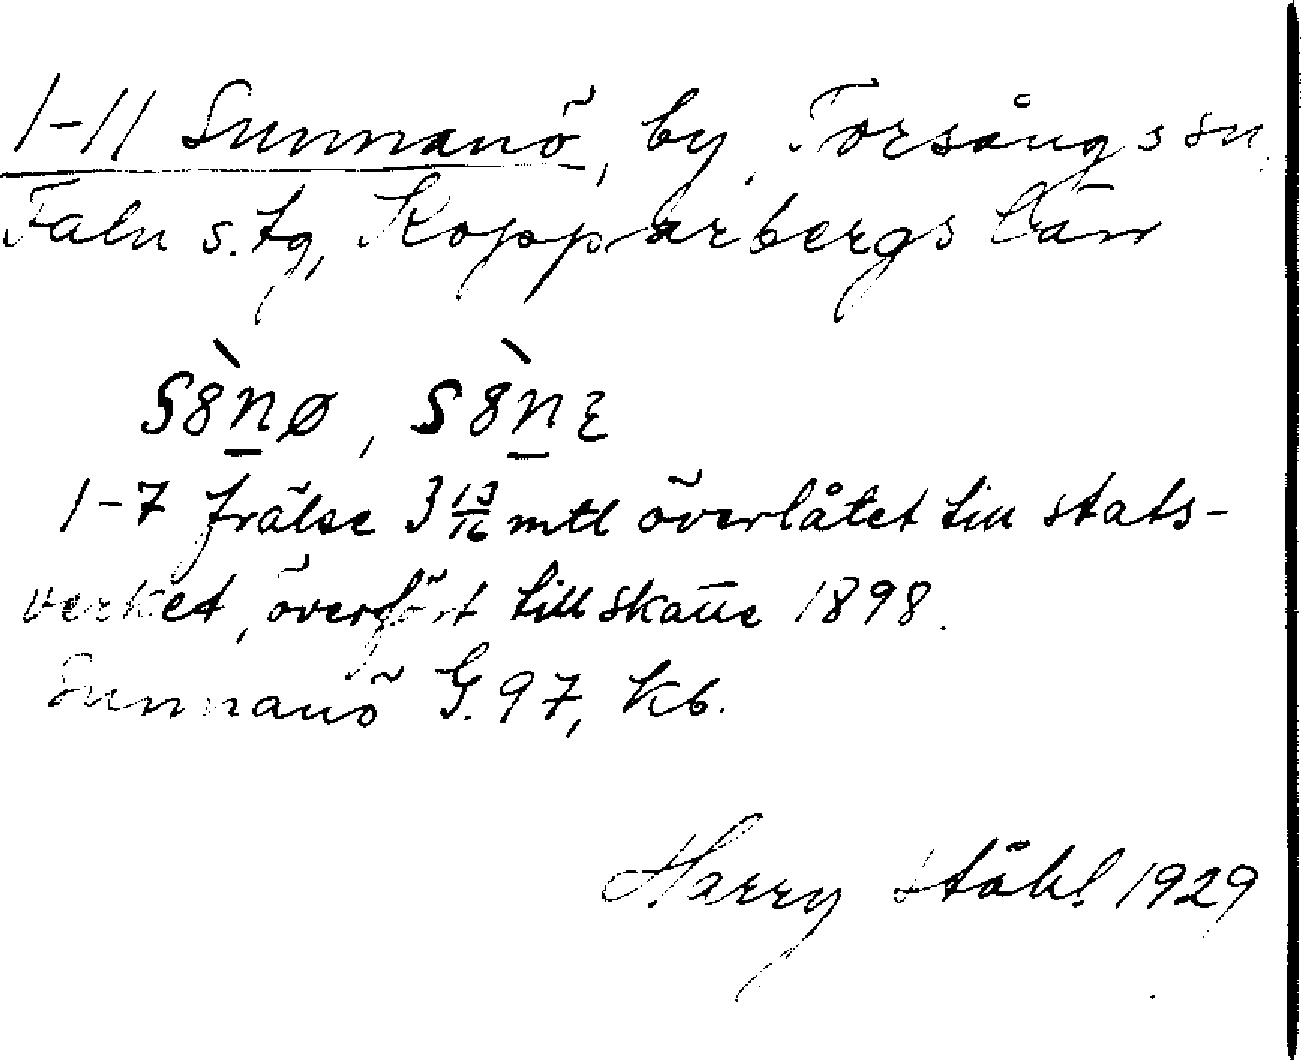 1-11 Sunnanö, by, Torsångs sn,
Falu s. tg, Kopparbergs län
s8̀n̲ø, s8̀n̲ɛ
1-7 frälse 3 13/16 mtl överlåtet till stats-
verket, överfört till skatte 1898.
Sunnanö G. 97, Kb.
Harry Ståhl 1929